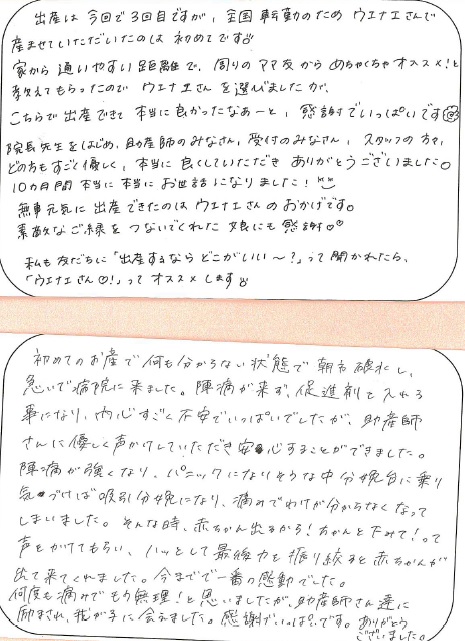 出産は今回で3回目ですが、全国転勤のため ウエナエさんで
産ませていただいたのは 初めてです
家から通いやすい距離で、周りのママ友から めちゃくちゃオススメ!と
教えてもらったので ウエナエさんを選びましたが、
こちらで出産できて本当に良かったなぁーと、感謝でいっぱいです
院長先生をはじめ、助産師のみなさん、受付のみなさん、スタッフの方々、
どの方もすごく優しく、本当に良くしていただき ありがとうございました。
10カ月間本当に本当にお世話になりました!
無事元気に出産できたのは ウエナエさんのおかげです。
素敵なご縁をつないでくれた娘にも感謝♡
私も友だちに「出産するなら どこがいい〜?」って聞かれたら、
「ウエナエさん♡!」って オススメします
初めてのお産で何も分からない状態で朝方破水し、
急いで病院に来ました。陣痛が来ず、促進剤を入れる
事になり、内心すごく不安でいっぱいでしたが、助産師
さんに優しく声かけしていただき安心することができました。
陣痛が強くなり、パニックになりそうな中分娩台に乗り
気づけば吸引分娩になり、痛みでわけが分からなくなって
しまいました。そんな時、赤ちゃん出るから!ちゃんと下みて!って
声をかけてもらい、ハッとして最後力を振り絞ると赤ちゃんが
出て来てくれました。今までで一番の感動でした。
何度も痛みでもう無理!と思いましたが、助産師さん達に
励まされ、我が子に会えました。感謝でいっぱいです。ありがとう
ございました。